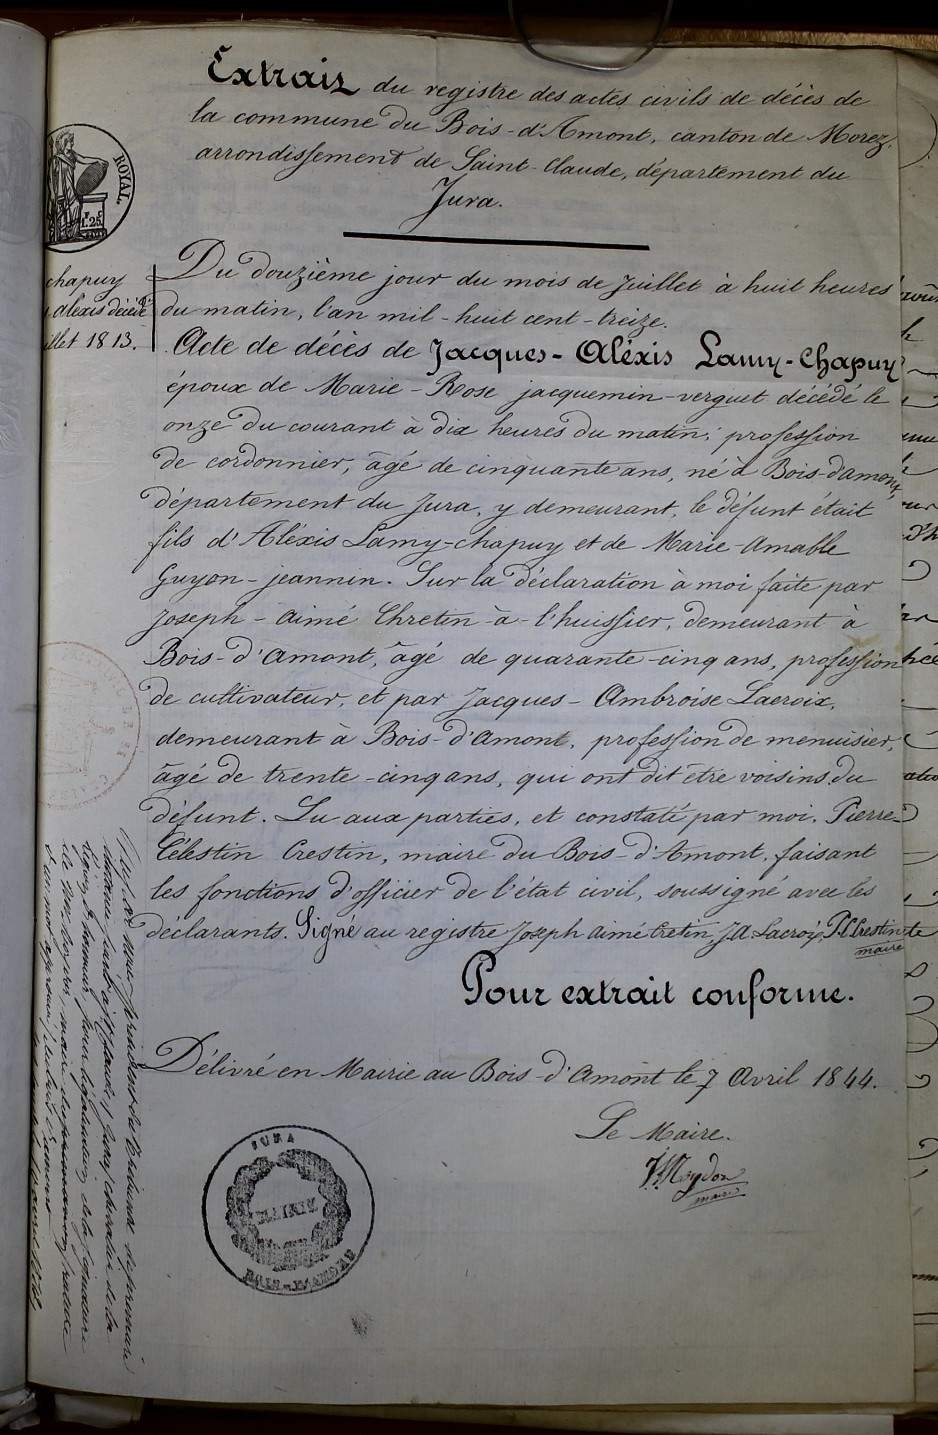 Extrait du registre des actes civils de décès de
la commune du Bois-d'Amont, canton de Morez,
arrondissement de Saint-Claude, département du
Jura.
ROYAL
1.25
chapuy
alexis décédé
illet 1813.
Du douzième jour du mois de Juillet à huit heures
du matin, l'an mil-huit cent-treize.
Acte de décès de Jacques-Aléxis Lamy-Chapuy
époux de Marie-Rose jacquemin-verguet décédé le
onze du courant à dix heures du matin; profession
de cordonnier, âgé de cinquante ans, né à Bois-damont,
département du Jura, y demeurant, le défunt était
fils d'Aléxis Lamy-chapuy et de Marie-Amable
Guyon-jeannin. Sur la déclaration à moi faite par
Joseph-Aimé Chretin-à-l'huissier, demeurant à
Bois-d'Amont, âgé de quarante-cinq ans, profession
de cultivateur, et par Jacques-Ambroise Lacroix,
demeurant à Bois-d'Amont, profession de menuisier,
âgé de trente-cinq ans, qui ont dit être voisins du
défunt. Lu aux parties, et constaté par moi, Pierre-
Célestin Crestin, maire du Bois-d'Amont, faisant
les fonctions d'officier de l'état civil, soussigné avec les
déclarants. Signé au registre Joseph aimé Cretin, J.A. Lacroix, P.C Crestin
maire
Pour extrait conforme.
Délivré en Mairie au Bois-d'Amont le 7 Avril 1844.
Le Maire.
maire
JURA
MAIRIE
BOIS-D'AMONT
Vu par nous président du Tribunal de première
chevalier de la
Légion d'honneur, pour légalisation de la signature